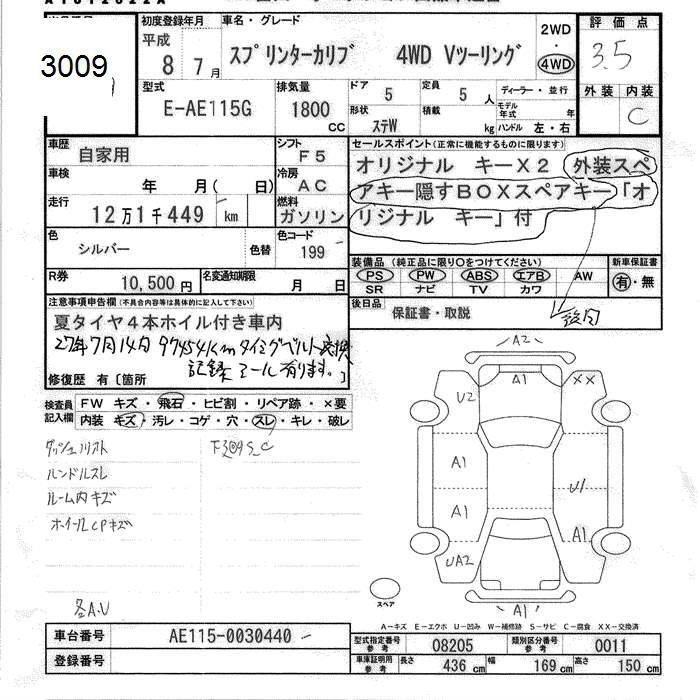 3009
初度登録年月 車名・グレード
平成 8年 7月 スプリンターカリブ 4WD Vツーリング 2WD・4WD
評価点 3.5
外装 内装 C
型式 E-AE115G
排気量 1800 CC
ドア 5 定員 5 人
形状 ステW 積載 kg
ディーラー・並行
モデル年式 年
ハンドル 左・右
車歴 自家用
シフト F5
車検 年 月( 日)
冷房 AC
走行 12万1千449 km
燃料 ガソリン
色 シルバー 色替
色コード 199
R券 10,500円 名変通知期限 月 日
セールスポイント(正常に機能するものに限ります)
オリジナル キーX2 外装スペ
アキー隠すBOXスペアキー「オ
リジナル キー」付
装備品(純正品に限り○をつけてください) 新車保証書
PS PW ABS エアB AW 有・無
SR ナビ TV カワ
後日品 保証書・取説
後日
注意事項申告欄(不具合内容等は具体的に記入して下さい)
夏タイヤ4本ホイル付き車内
27年7月14日 97454km タイミングベルト交換
記録シール有ります。
修復歴 有〔箇所 〕
検査員記入欄
FW キズ・飛石・ヒビ割・リペア跡・×要
内装 キズ・汚レ・コゲ・穴・スレ・キレ・破レ
ハンドルスレ
ルーム内キズ
ホイールCPキズ
各A.U
A2
A1
U2
XX
A1
A1
U1
A1
UA2
A1
スペア
A-キズ E-エクボ U-凹み W-補修跡 S-サビ C-腐食 XX-交換済
車台番号 AE115-0030440
登録番号
型式指定番号 参考 08205 類別区分番号 参考 0011
車庫証明用 参考 長さ 436 cm 幅 169 cm 高さ 150 cm